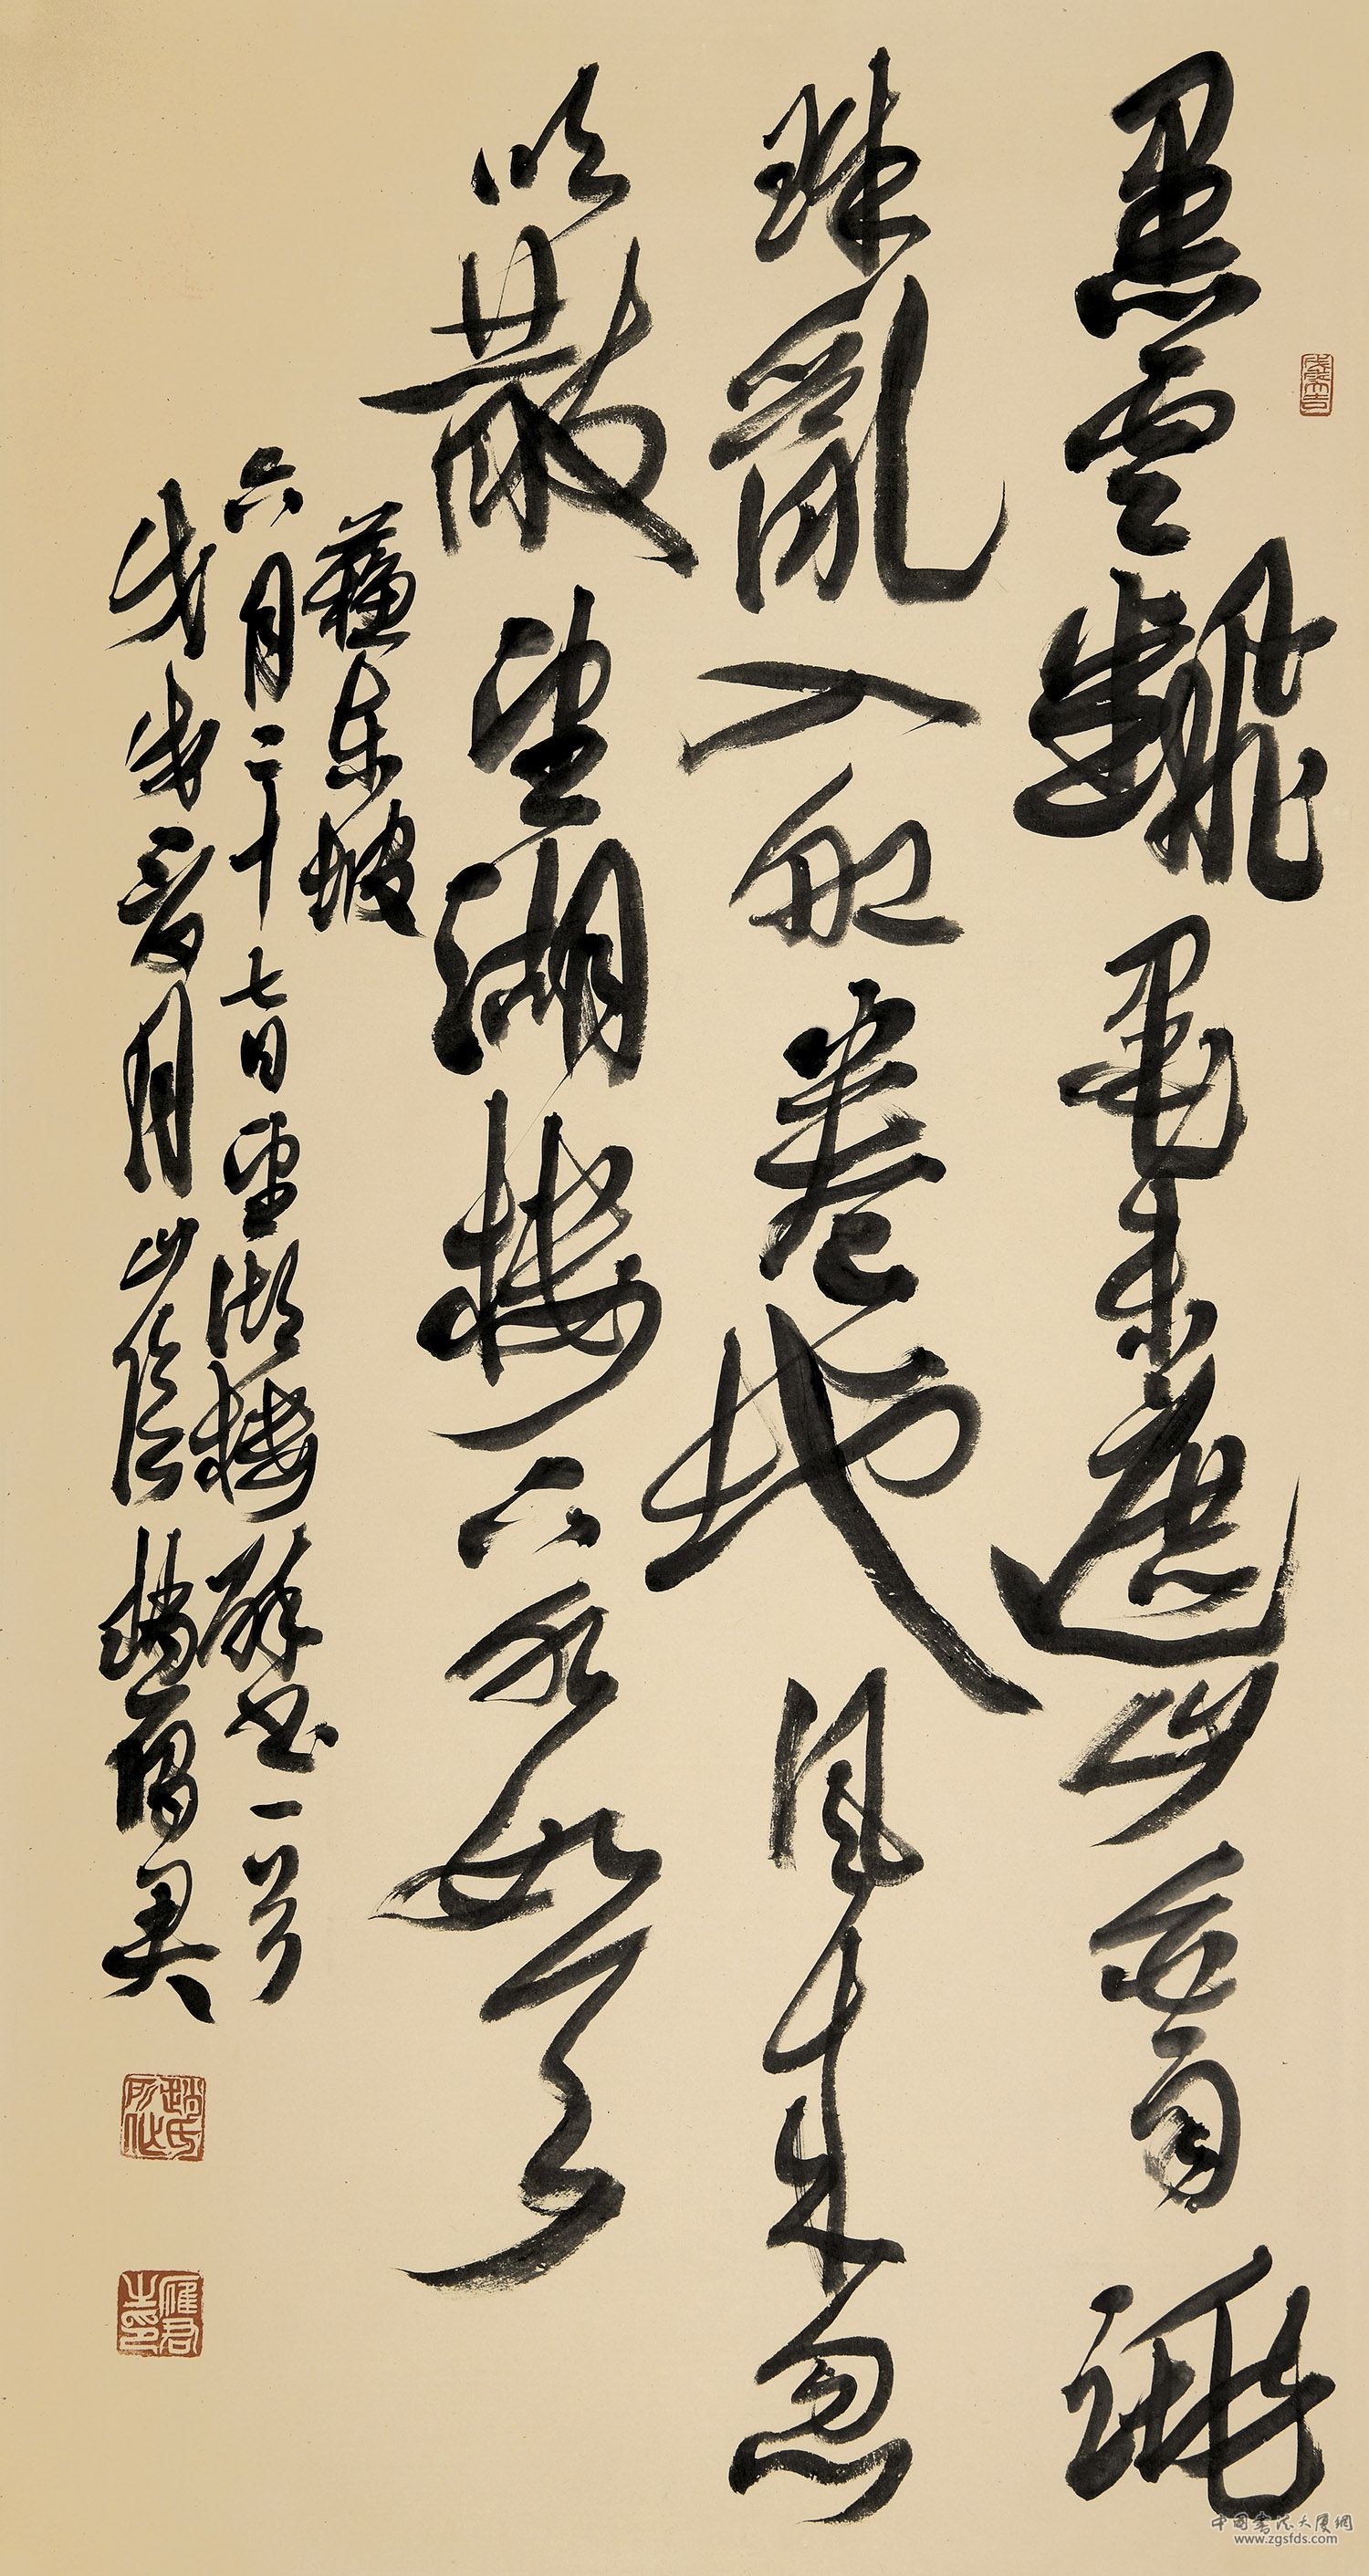 黑雲飜墨未遮山白雨跳
珠亂入船卷地風來忽
吹散望湖樓下水如天
蘇東坡
六月二十七日望湖樓醉書一首
戊戌春月山陰趙雁君
雁君之印
中国書法大廈網
www.zgsfds.com